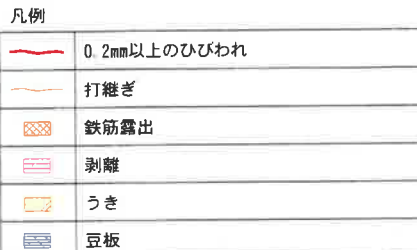 凡例
0.2mm以上のひびわれ
打継ぎ
鉄筋露出
剥離
うき
豆板